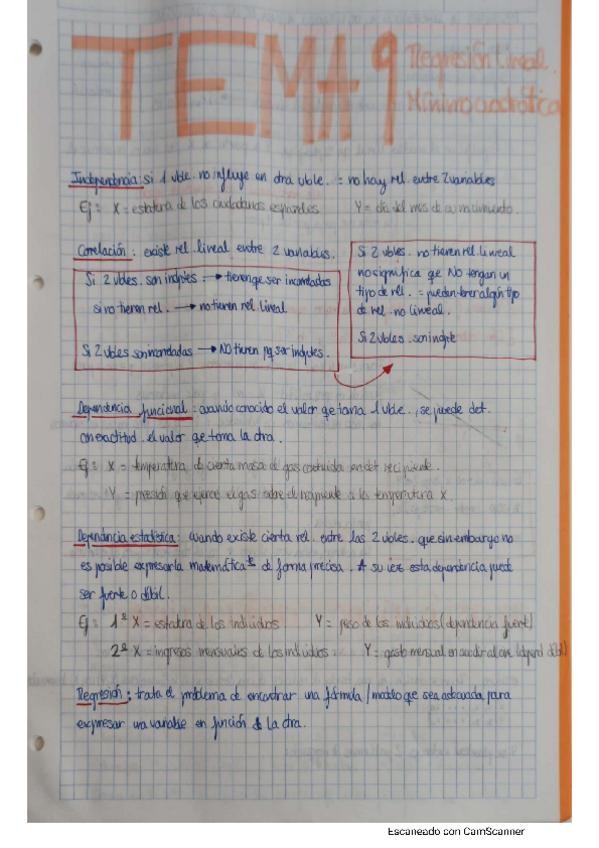 TEMA 9
Regresión Lineal.
Mínimo cuadrática
Independencia: si 1 vble. no influye en otra vble. = no hay rel. entre 2 variables
Ej: X = estatura de los ciudadanos españoles Y = día del mes de su nacimiento.
Correlación: existe rel. lineal entre 2 variables.
Si 2 vbles. son indptes. → tienen qe ser incorreladas
si no tienen rel. → no tienen rel. lineal
Si 2 vbles son incorreladas → NO tienen pq ser indptes.
Si 2 vbles. no tienen rel. lineal
no significa que NO tengan un
tipo de rel. = pueden tener algún tipo
de rel. no lineal.
Si 2 vbles. son indpte
Dependencia funcional: cuando conocido el valor qe toma 1 vble., se puede det.
con exactitud. el valor qe toma la otra.
Ej: X = temperatura de cierta masa de gas en det recipiente.
Y = presión que ejerce el gas sobre el recipiente a la temperatura X.
Dependencia estadística: cuando existe cierta rel. entre las 2 vbles. que sin embargo no
es posible expresarla matemática^te de forma precisa. A su vez esta dependencia puede
ser fuerte o débil.
Ej: 1º X = estatura de los individuos Y = peso de los individuos (dependencia fuerte)
2º X = ingresos mensuales de los individuos. Y = gasto mensual en (depend débil)
Regresión: trata el problema de encontrar una fórmula/modelo que sea adecuada para
expresar una variable en función de la otra.
Escaneado con CamScanner